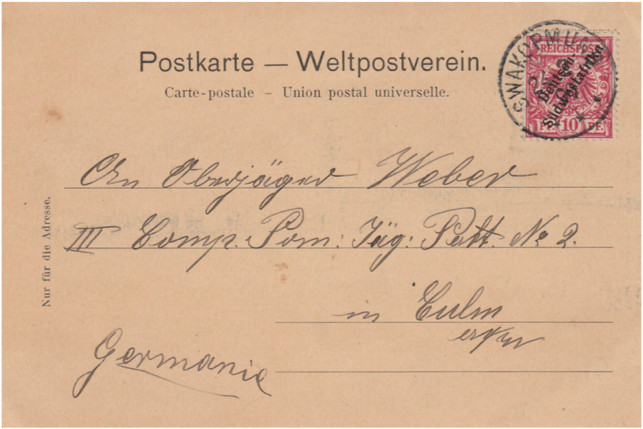 Postkarte — Weltpostverein.
Carte-postale – Union postal universelle.
SWAKOPMU
REICHSPOST
Deutsch-
Südwestafrika
10
Nur für die Adresse.
An Oberjäger Weber
III Comp. Pom: Jäg: Batt. No 2.
in Culm
Germania